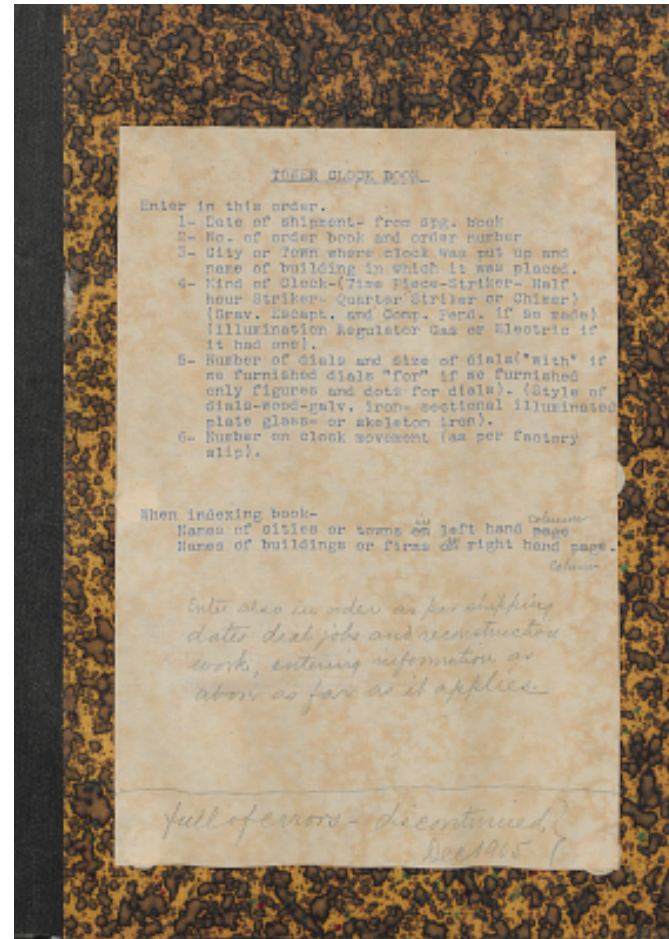 TOWER CLOCK BOOK
Enter in this order.
1- Date of shipment- from spg. book
2- No. of order book and order number
3- City or Town where clock was put up and
name of building in which it was placed.
4- Kind of Clock-(Time Piece-Striker- Half
hour Striker- Quarter Striker or Chimer)
(Grav. Escapt. and Comp. Pend. if so made)
(illumination Regulator Gas or Electric if
it had one).
5- Number of dials and size of dials("with" if
we furnished dials "for" if we furnished
only figures and dots for dials). (Style of
dials-wood-galv. iron- sectional illuminated
plate glass- or skeleton iron).
6- Number on clock movement (as per factory
slip).
When indexing book-
in column
Names of cities or towns on left hand page
Names of buildings or firms on right hand page.
column
Enter also in order as per shipping
dates dial jobs and reconstruction
work, entering information as
above as far as it applies.
full of errors - discontinued
Dec 1905